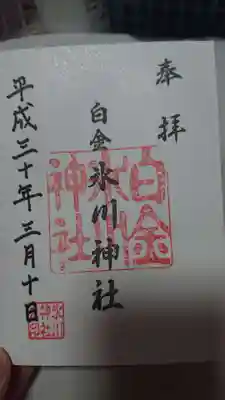 奉拝
白金氷川神社
平成三十年三月十日
白金
氷川
神社
氷川
神社